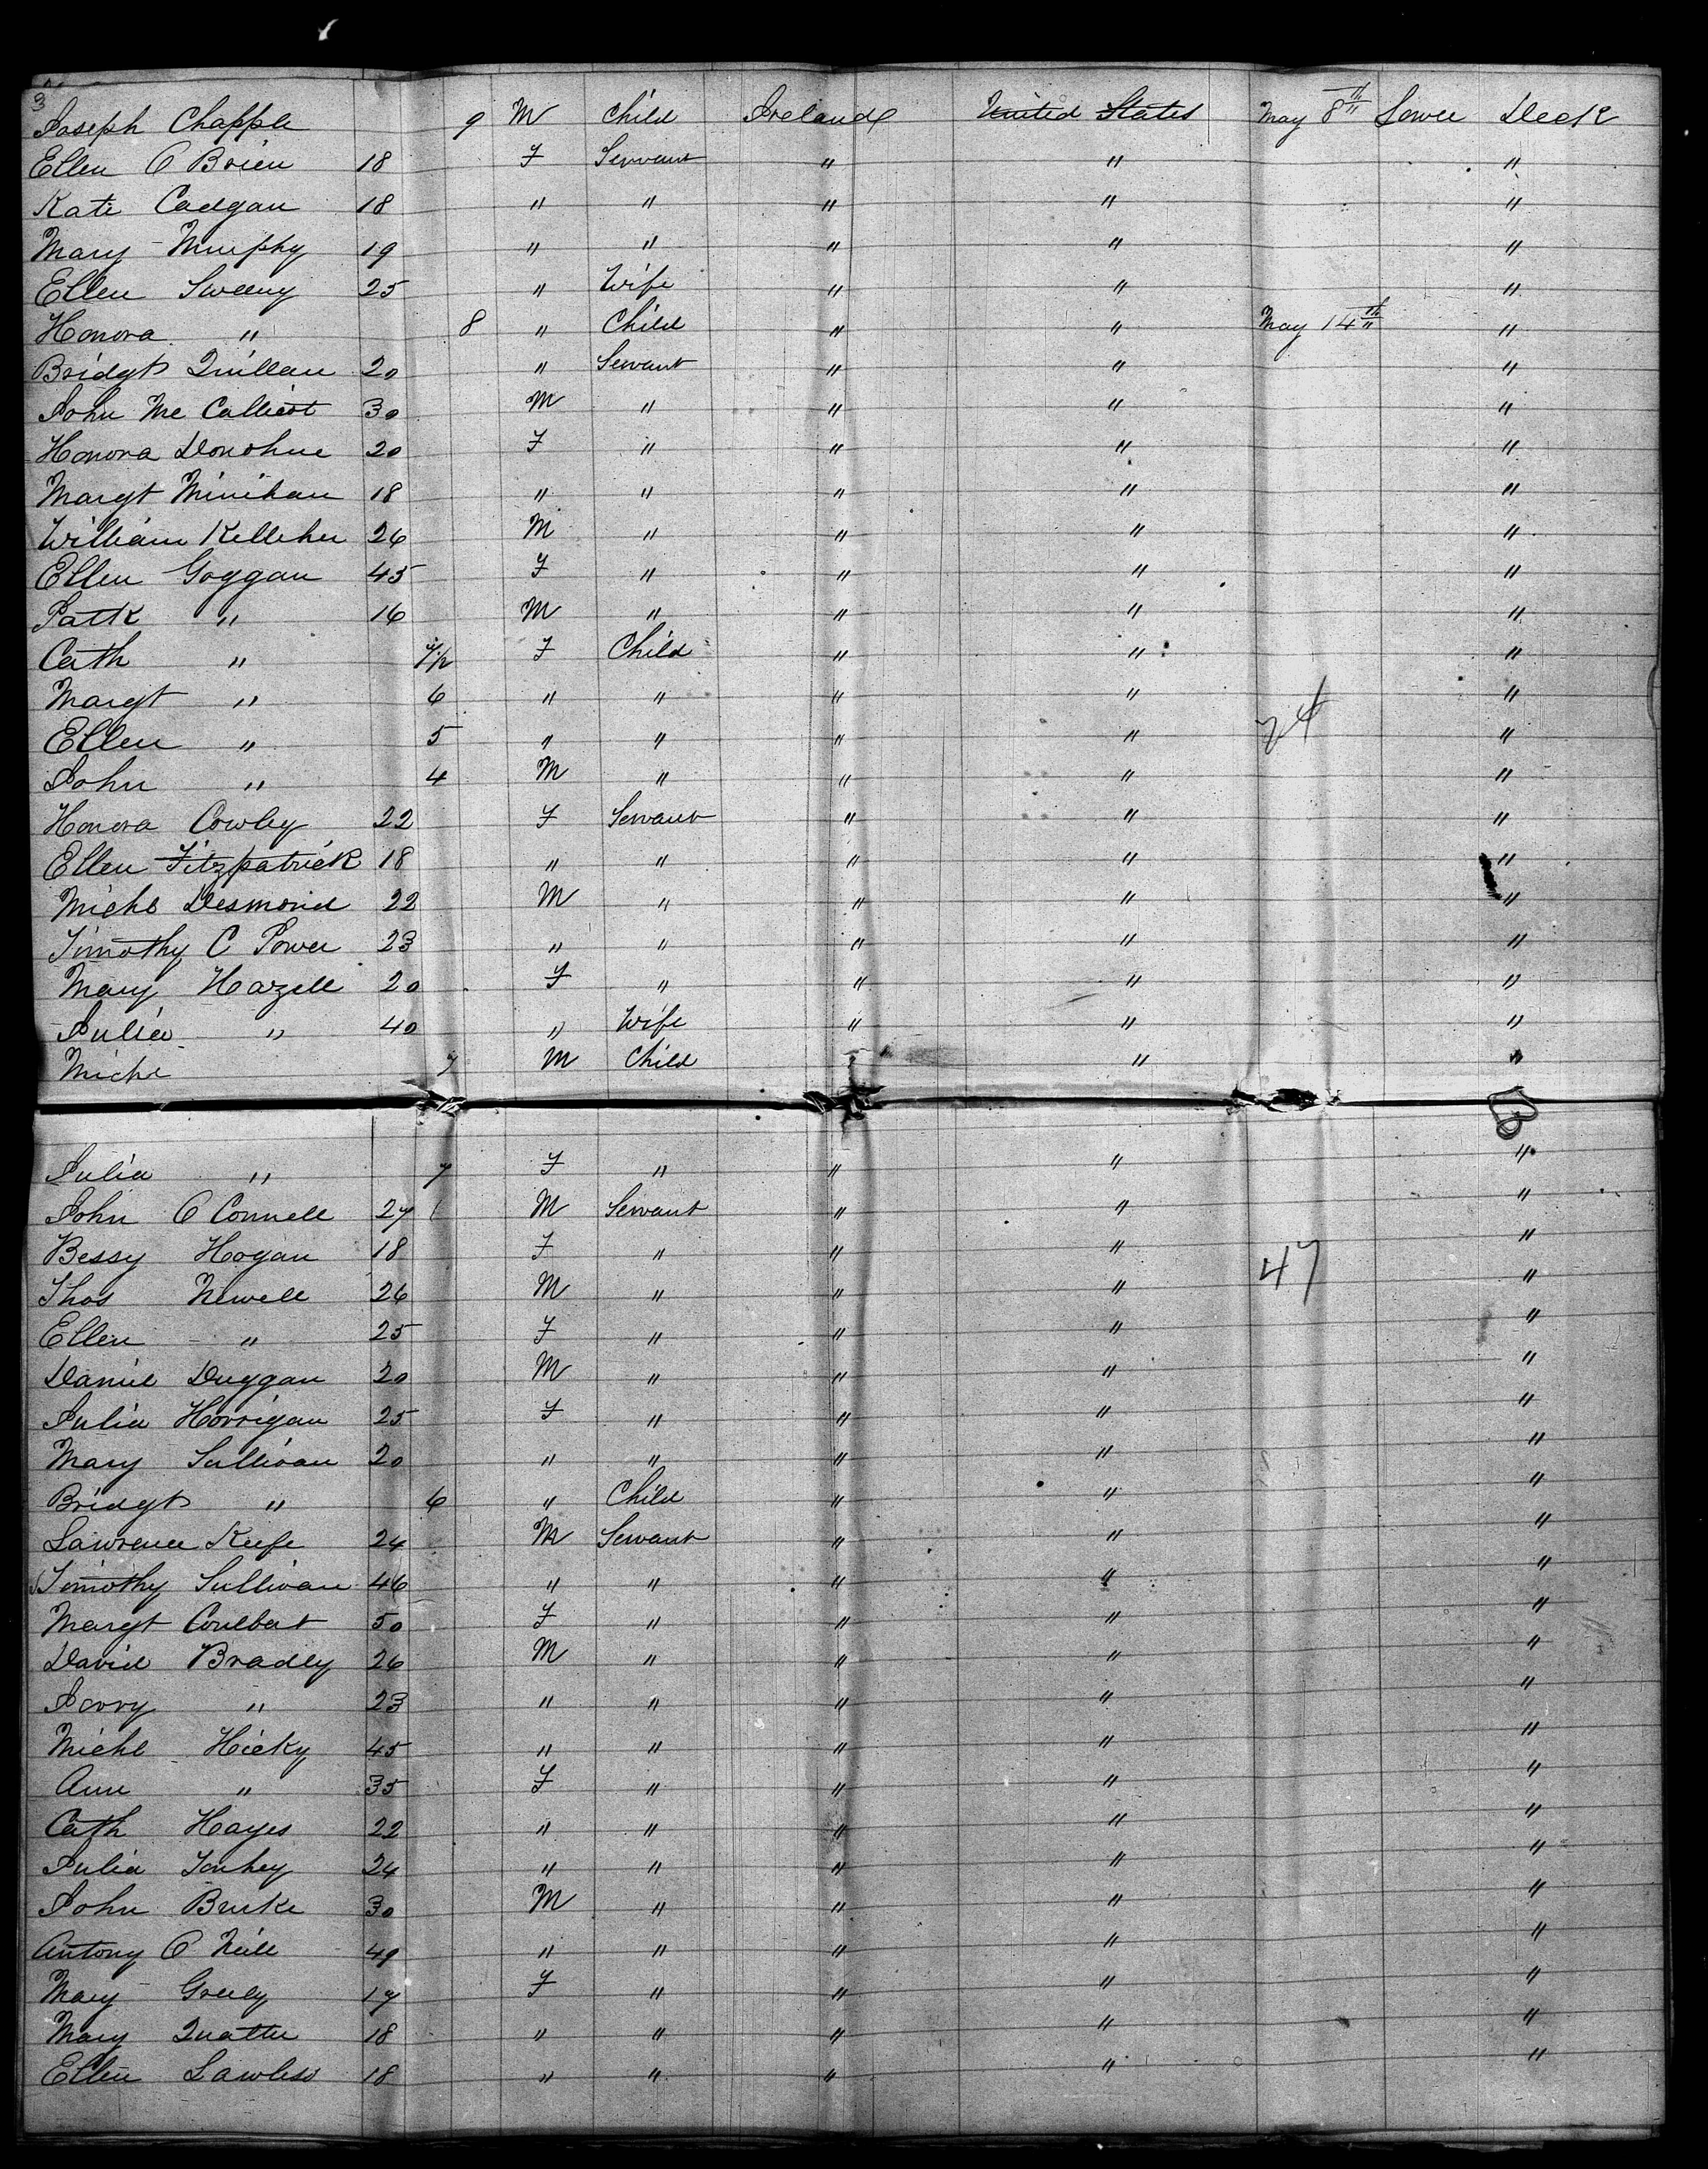 3
Joseph Chapple 9 M Child Ireland United States May 8th Lower Deck
Ellen O Brien 18 F Servant " " "
Kate Cadgan 18 " " " " "
Mary Murphy 19 " " " " "
Ellen Sweeny 25 " Wife " " "
Honora " 8 " Child " " May 14th "
Bridgt Quillan 20 " Servant " " "
John Mc 30 M " " " "
Honora Donohue 20 F " " " "
Margt Minihan 18 " " " " "
William Kelleher 26 M " " " "
Ellen Goggan 45 F " " " "
Patk " 16 M " " " "
Cath " F Child " " "
Margt " 6 " " " " "
Ellen " 5 " " " " "
24
John " 4 M " " " "
Honora Cowley 22 F Servant " " "
Ellen Fitzpatrick 18 " " " " "
Michl Desmond 22 M " " " "
Timothy C Power 23 " " " " "
Mary Hazell 20 F " " " "
Julia " 40 " Wife " " "
Michl 7 M Child " "
Julia " 7 F " " " "
John O Connell 27 M Servant " " "
Bessy Hogan 18 F " " " "
47
Thos Newell 26 M " " " "
Ellen " 25 F " " " "
Daniel Duggan 20 M " " " "
Julia Horrigan 25 F " " " "
Mary Sullivan 20 " " " " "
Bridgt " 6 " Child " " "
Lawrence Keefe 24 M Servant " " "
Timothy Sullivan 46 " " " " "
Margt 50 F " " " "
David Bradley 26 M " " " "
Jerry " 23 " " " " "
Michl Hicky 45 " " " " "
Ann " 35 F " " " "
Cath Hayes 22 " " " " "
Julia 24 " " " " "
John Burke 30 M " " " "
Antony O Neill 49 " " " " "
Mary Greely 17 F " " " "
Mary 18 " " " " "
Ellen Lawless 18 " " " " "